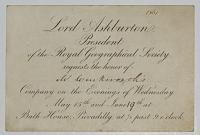 Lord Ashburton
President
of the Royal Geographical Society
requests the honor of
Company on the Evenings of Wednesday
May 15th and June 19th at
Bath House, Piccadilly at ½ past 9 o'clock.